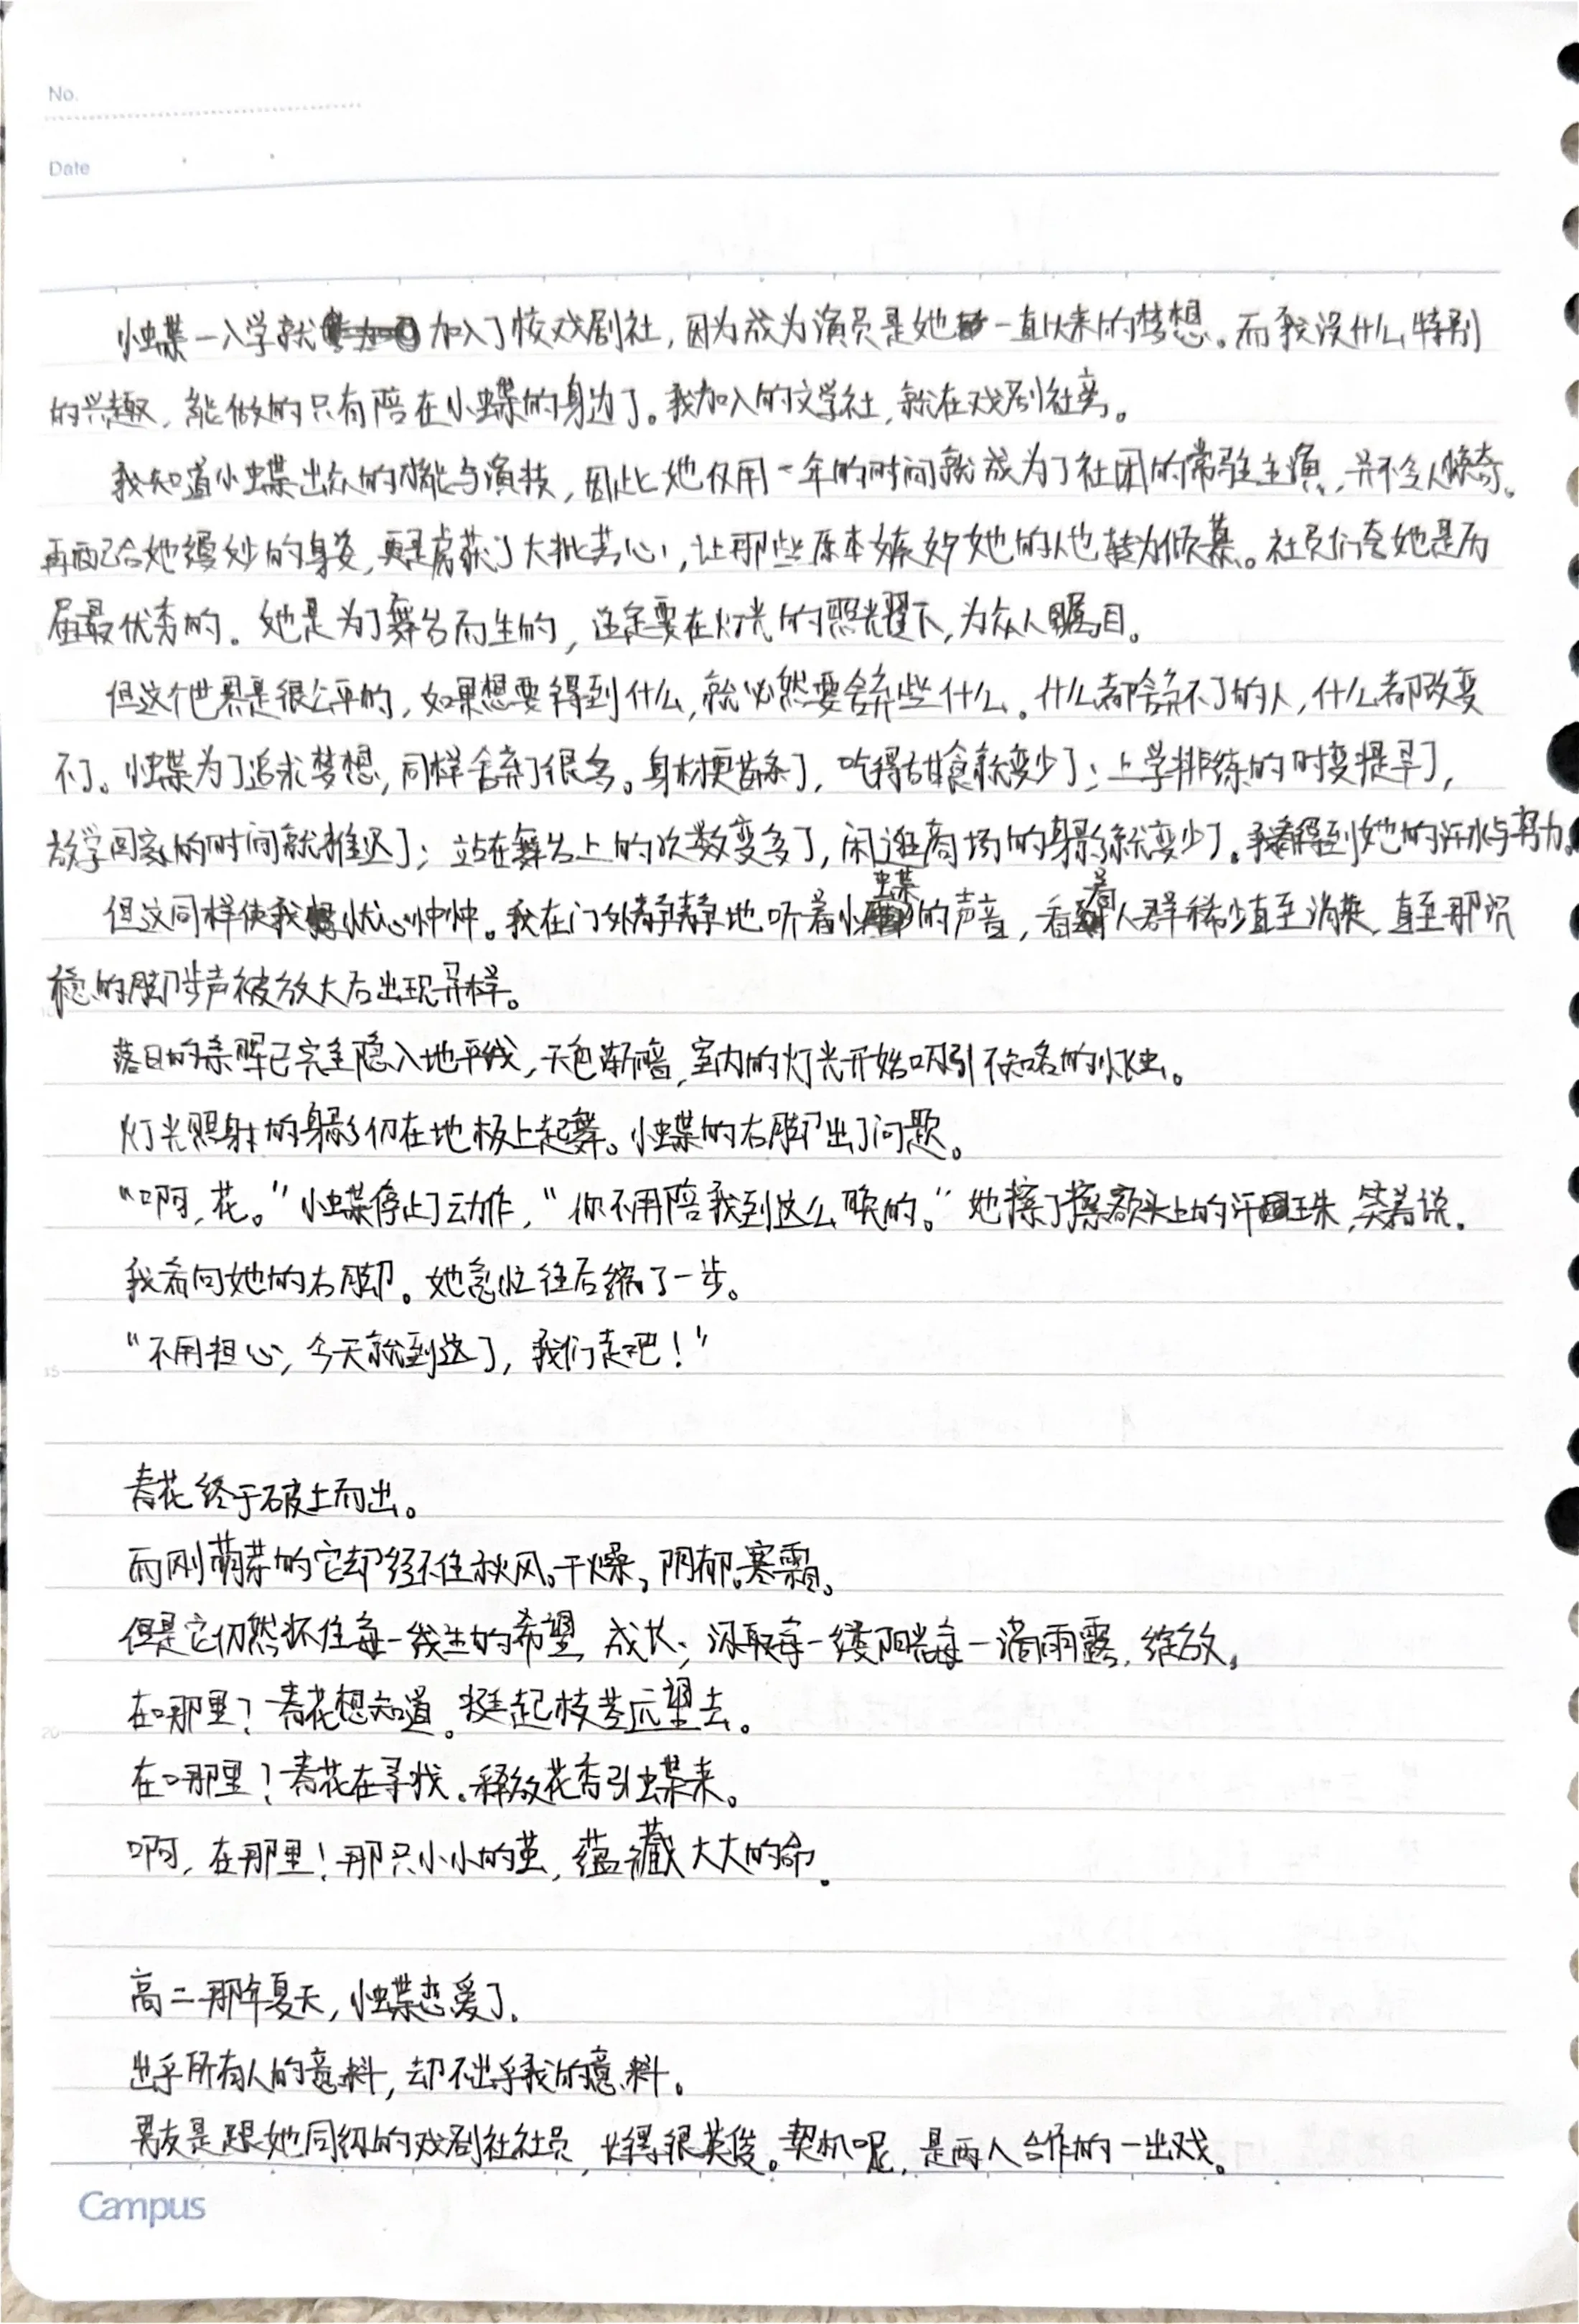 No.
Date
小蝶一入学就加入了校戏剧社，因为成为演员是她一直以来的梦想。而我没什么特别
的兴趣，能做的只有陪在小蝶的身边了。我加入的文学社，就在戏剧社旁。
我知道小蝶出众的才能与演技，因此她仅用一年的时间就成为了社团的常驻主演，并不令人惊奇。
再配合她缦妙的身姿，更是虏获了大批芳心，让那些原本嫉妒她的人也转为倾慕。社员们夸她是历
届最优秀的。她是为了舞台而生的，注定要在灯光的照耀下，为众人瞩目。
但这个世界是很公平的，如果想要得到什么，就必然要舍弃些什么。什么都舍弃不了的人，什么都改变
不了。小蝶为了追求梦想，同样舍弃了很多。身材更苗条了，吃得甜食就变少了；上学排练的时变提早了，
放学回家的时间就推迟了；站在舞台上的次数变多了，闲逛商场的身影就变少了。我看得到她的汗水与努力。
但这同样使我忧心忡忡。我在门外静静地听着小蝶的声音，看着人群稀少直至消失，直至那沉
稳的脚步声被放大后出现异样。
落日的余晖已完全隐入地平线，天色渐暗，室内的灯光开始吸引不知名的小飞虫。
灯光照射的身影仍在地板上起舞。小蝶的右脚出了问题。
“啊，花。”小蝶停止了动作，“你不用陪我到这么晚的。”她擦了擦额头上的汗珠，笑着说。
我看向她的右脚。她急忙往后缩了一步。
“不用担心，今天就到这了，我们走吧！”
青花终于破土而出。
而刚萌芽的它却经不住秋风。干燥，阴郁。寒霜。
但是它仍然抓住每一线生的希望，成长；汲取每一缕阳光每一滴雨露，绽放。
在哪里？青花想知道。挺起枝茎远望去。
在哪里？青花在寻找。释放花香引蝶来。
啊，在那里！那只小小的茧，蕴藏大大的命.
高二那年夏天，小蝶恋爱了。
出乎所有人的意料，却不出乎我的意料。
男友是跟她同级的戏剧社社员，长得很英俊。契机呢，是两人合作的一出戏。
Campus